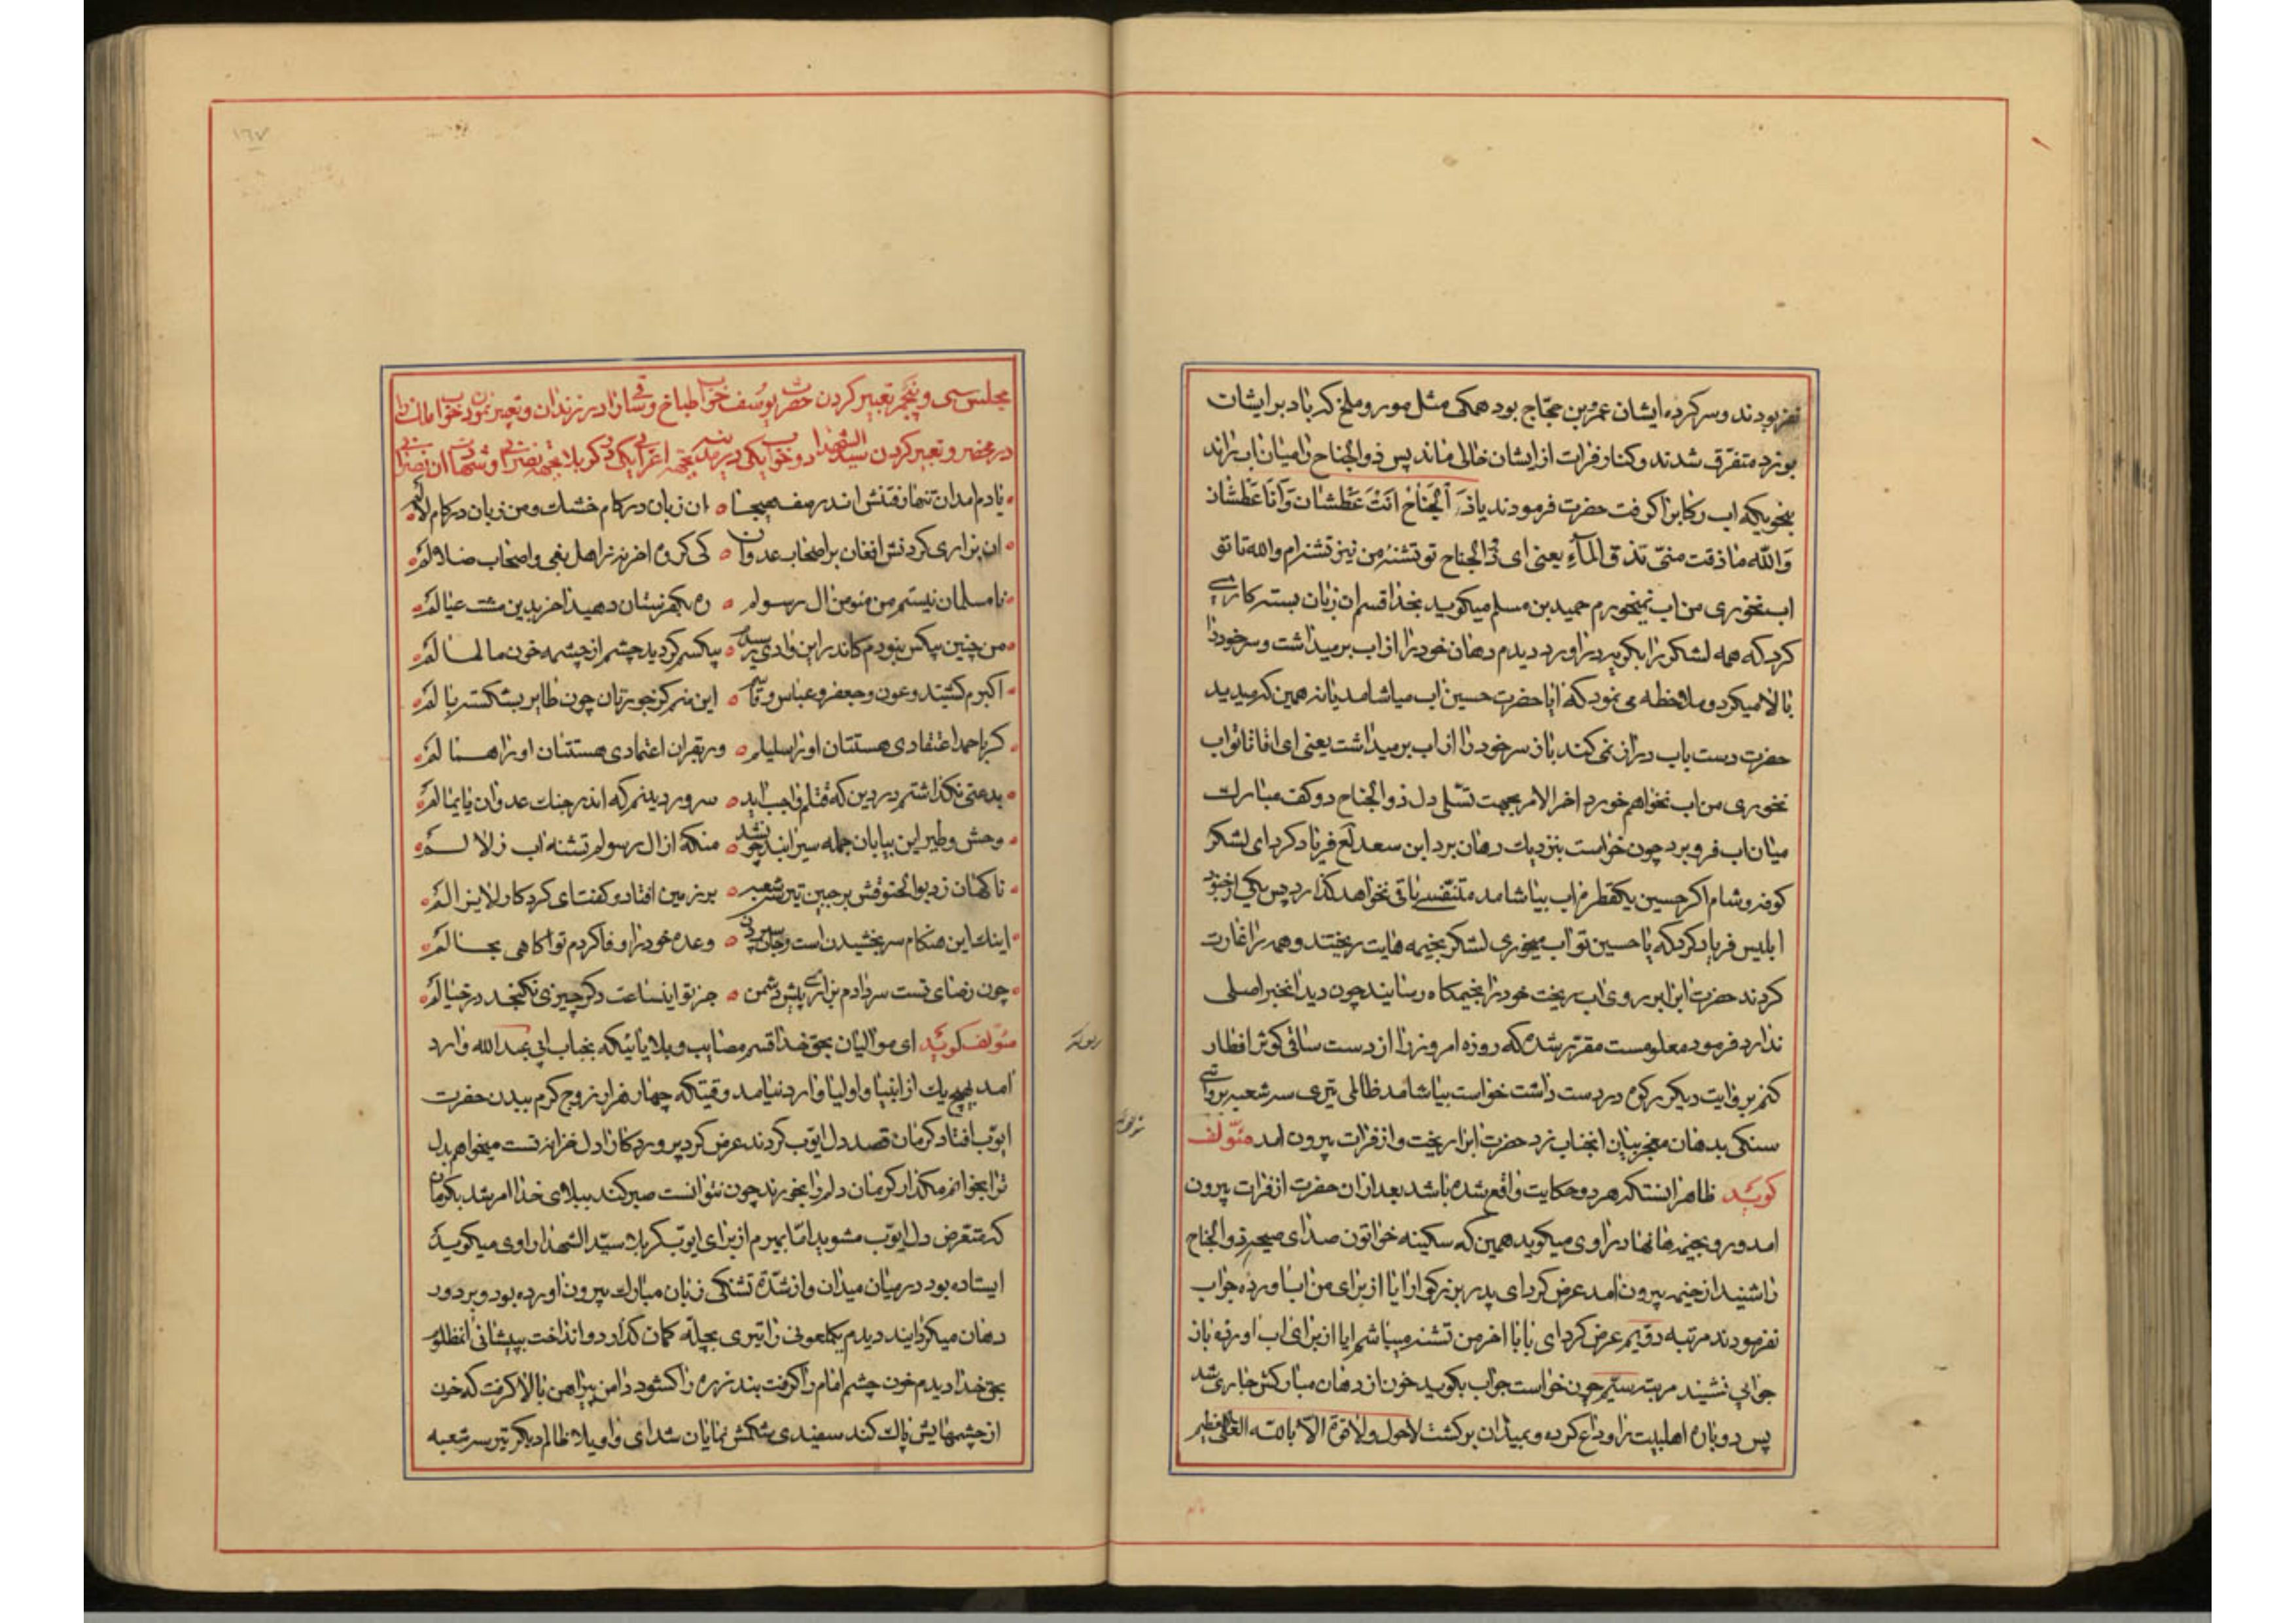 نفر بودند و سر کرده ایشان عمرو بن حجّاج بود همکی مثل مور و ملخ که باد بر ایشان
بوزد متفرّق شدند و کنار فرات از ایشان خالی ماند پس ذو الجناح را میان آب راند
بنحویکه اب رکابرا کرفت حضرت فرمودند یا ذو الجَناحْ انَتْ عَطشان وَ اَنَا عَطشان
وَ اللّه ما ذقت حتّی تذق المآء یعنی ای ذو الجناح تو تشنه من نیز تشنه‌ام والله تا تو
اب نخوری من اب نمیخورم حمید بن مسلم میکوید بخدا قسم ان زبان بسته کاری
کرد که همه لشکر را بکریه دراورد دیدم دهان خود را از اب بر میداشت و سر خود را
بالا میکرد و ملاحظه می نمود که ایا حضرت حسین اب میاشامد یا نه همین که میدید
حضرت دست باب دراز نمی کند باز سر خود را از اب بر میداشت یعنی ای اقا تا تو اب
نخوری من اب نخواهم خورد اخر الامر بجهت تسّلی دل ذو الجناح دو کف مبارک
میان اب فرو برد چون خواست بنزدیک دهان برد ابن سعد لع فریاد کرد ای لشکر
کوفه و شام اکر حسین یکقطره اب بیاشامد متنفّسی باقی نخواهد کذارد پس یکی از جنود
ابلیس فریاد کرد که یا حسین تو اب میخوری لشکر بخیمه هایت ریختند و همه را غارت
کردند حضرت ابرا بر روی اب ریخت خود را بخیمکاه رسانید چون دید انخبر اصلی
ندارد فرمود معلومست مقرّر شده که روزه امروز را از دست ساقی کوثر افطار
کنم بروایت دیکر رکوه در دست داشت خواست بیاشامد ظالمی تیری سر شعبه بروایتی
سنکی بدهان معجز بیان انجناب زد حضرت ابرا ریخت و از فرات بیرون امد مؤلّف
کوید ظاهر اینستکه هر دو حکایت واقع شده باشد بعد از ان حضرت از فرات بیرون
امد و رو بخیمه ها نهاد راوی میکوید همین که سکینه خواتون صدای صیحه ذو الجناح
را شنید از خیمه بیرون امد عرض کرد ای پدر بزرکوار ایا از برای من اب اورده جواب
نفرمودند مرتبه دوّیم عرض کرد ای بابا اخر من تشنه میباشم ایا از برای اب اورده باز
جوابی نشنید مرتبه سیّم چون خواست جواب بکوید خون از دهان مبارکش جاری شد
پس دوباره اهلبیت را وداع کرده و بمیدان برکشت لاحول ولاقوّة الّا بالله العلی العظیم
١٦٧
مجلس سی و پنجم تعبیر کردن حضرت یوسف خواب طباخ و ساقی را در زندان و تعبیر نمودن خواب مالک را
در محضر و تعبیر کردن سید الشهدا دو خواب یکی در مدینه یکی در کربلا
یادم امدان تنها رفتنش اندر صف هیجا ان زبان در کام خشک و من زبان در کام لالم
ان بزاری کردنش افغان بر اصحاب عدوان کی کروه اخر نه از اهل بغی و اصحاب ضلالم
نا مسلمان نیستم من مؤمن ال رسولم ره بکفرستان دهید اخر بدین مشت عیالم
من چنین بیکس نبودم کاندر این وادی بیکسم کردید چشم از چشمه خون مالمالم
اکبرم کشتید و عون و جعفر و عباس و این منم کز جورتان چون طایر بشکسته بالم
کر باحمد اعتقادی هستتان او را سلیلم ور بقران اعتمادی هستتان او را همالم
بدعتی نکذاشتم در دین که قتلم واجب اید
وحش و طیر این بیابان جمله سیرابند چون شد منکه از ال رسولم تشنه اب زلالم
ناکهان زد بوالحنوقش بر جبین تیر سه شعبه بر زمین افتاد و کفت ای کردکار لایزالم
اینک این هنکام سر بخشیدن است و جان سپردن وعده خود را وفا کردم تو اکاهی بحالم
چون رضای تست سر دادم بزاری پیش دشمن جز تو اینساعت دکر چیزی نکنجد در خیالم
مؤلف کوید ای موالیان بحق خدا قسم مصایب و بلایائیکه بجناب ابی عبد الله وارد
امد بهیچ یک از انبیا و اولیا وارد نیامد وقتیکه چهار هزار زوج کرم ببدن حضرت
ایوّب افتاد کرمان قصد دل ایوّب کردند عرض کرد پروردکارا دل خزانه تست میخواهم بدل
ترا بخوانم مکذار کرمان دلرا بخورند چون نتوانست صبر کند ببلای خدا امر شد بکرمان
که متعّرض دل ایوّب مشوید امّا بمیرم از برای ایوّب کربلا سیّد الشهدا راوی میکوید
ایستاده بود در میان میدان و از شدّة تشنکی زبان مبارک بیرون اورده بود و بر دور
دهان میکردانید دیدم یکملعونی را تیری بچلّه کمان کذارد و انداخت بپیشانی انمظلوم
بحق خدا دیدم خون چشم امام را کرفت بند زره را کشود دامن پیراهن بالا کرفت که خون
از چشمهایش پاک کند سفیدی شکمش نمایان شد ای واویلا ظالم دیکر تیر سر شعبه